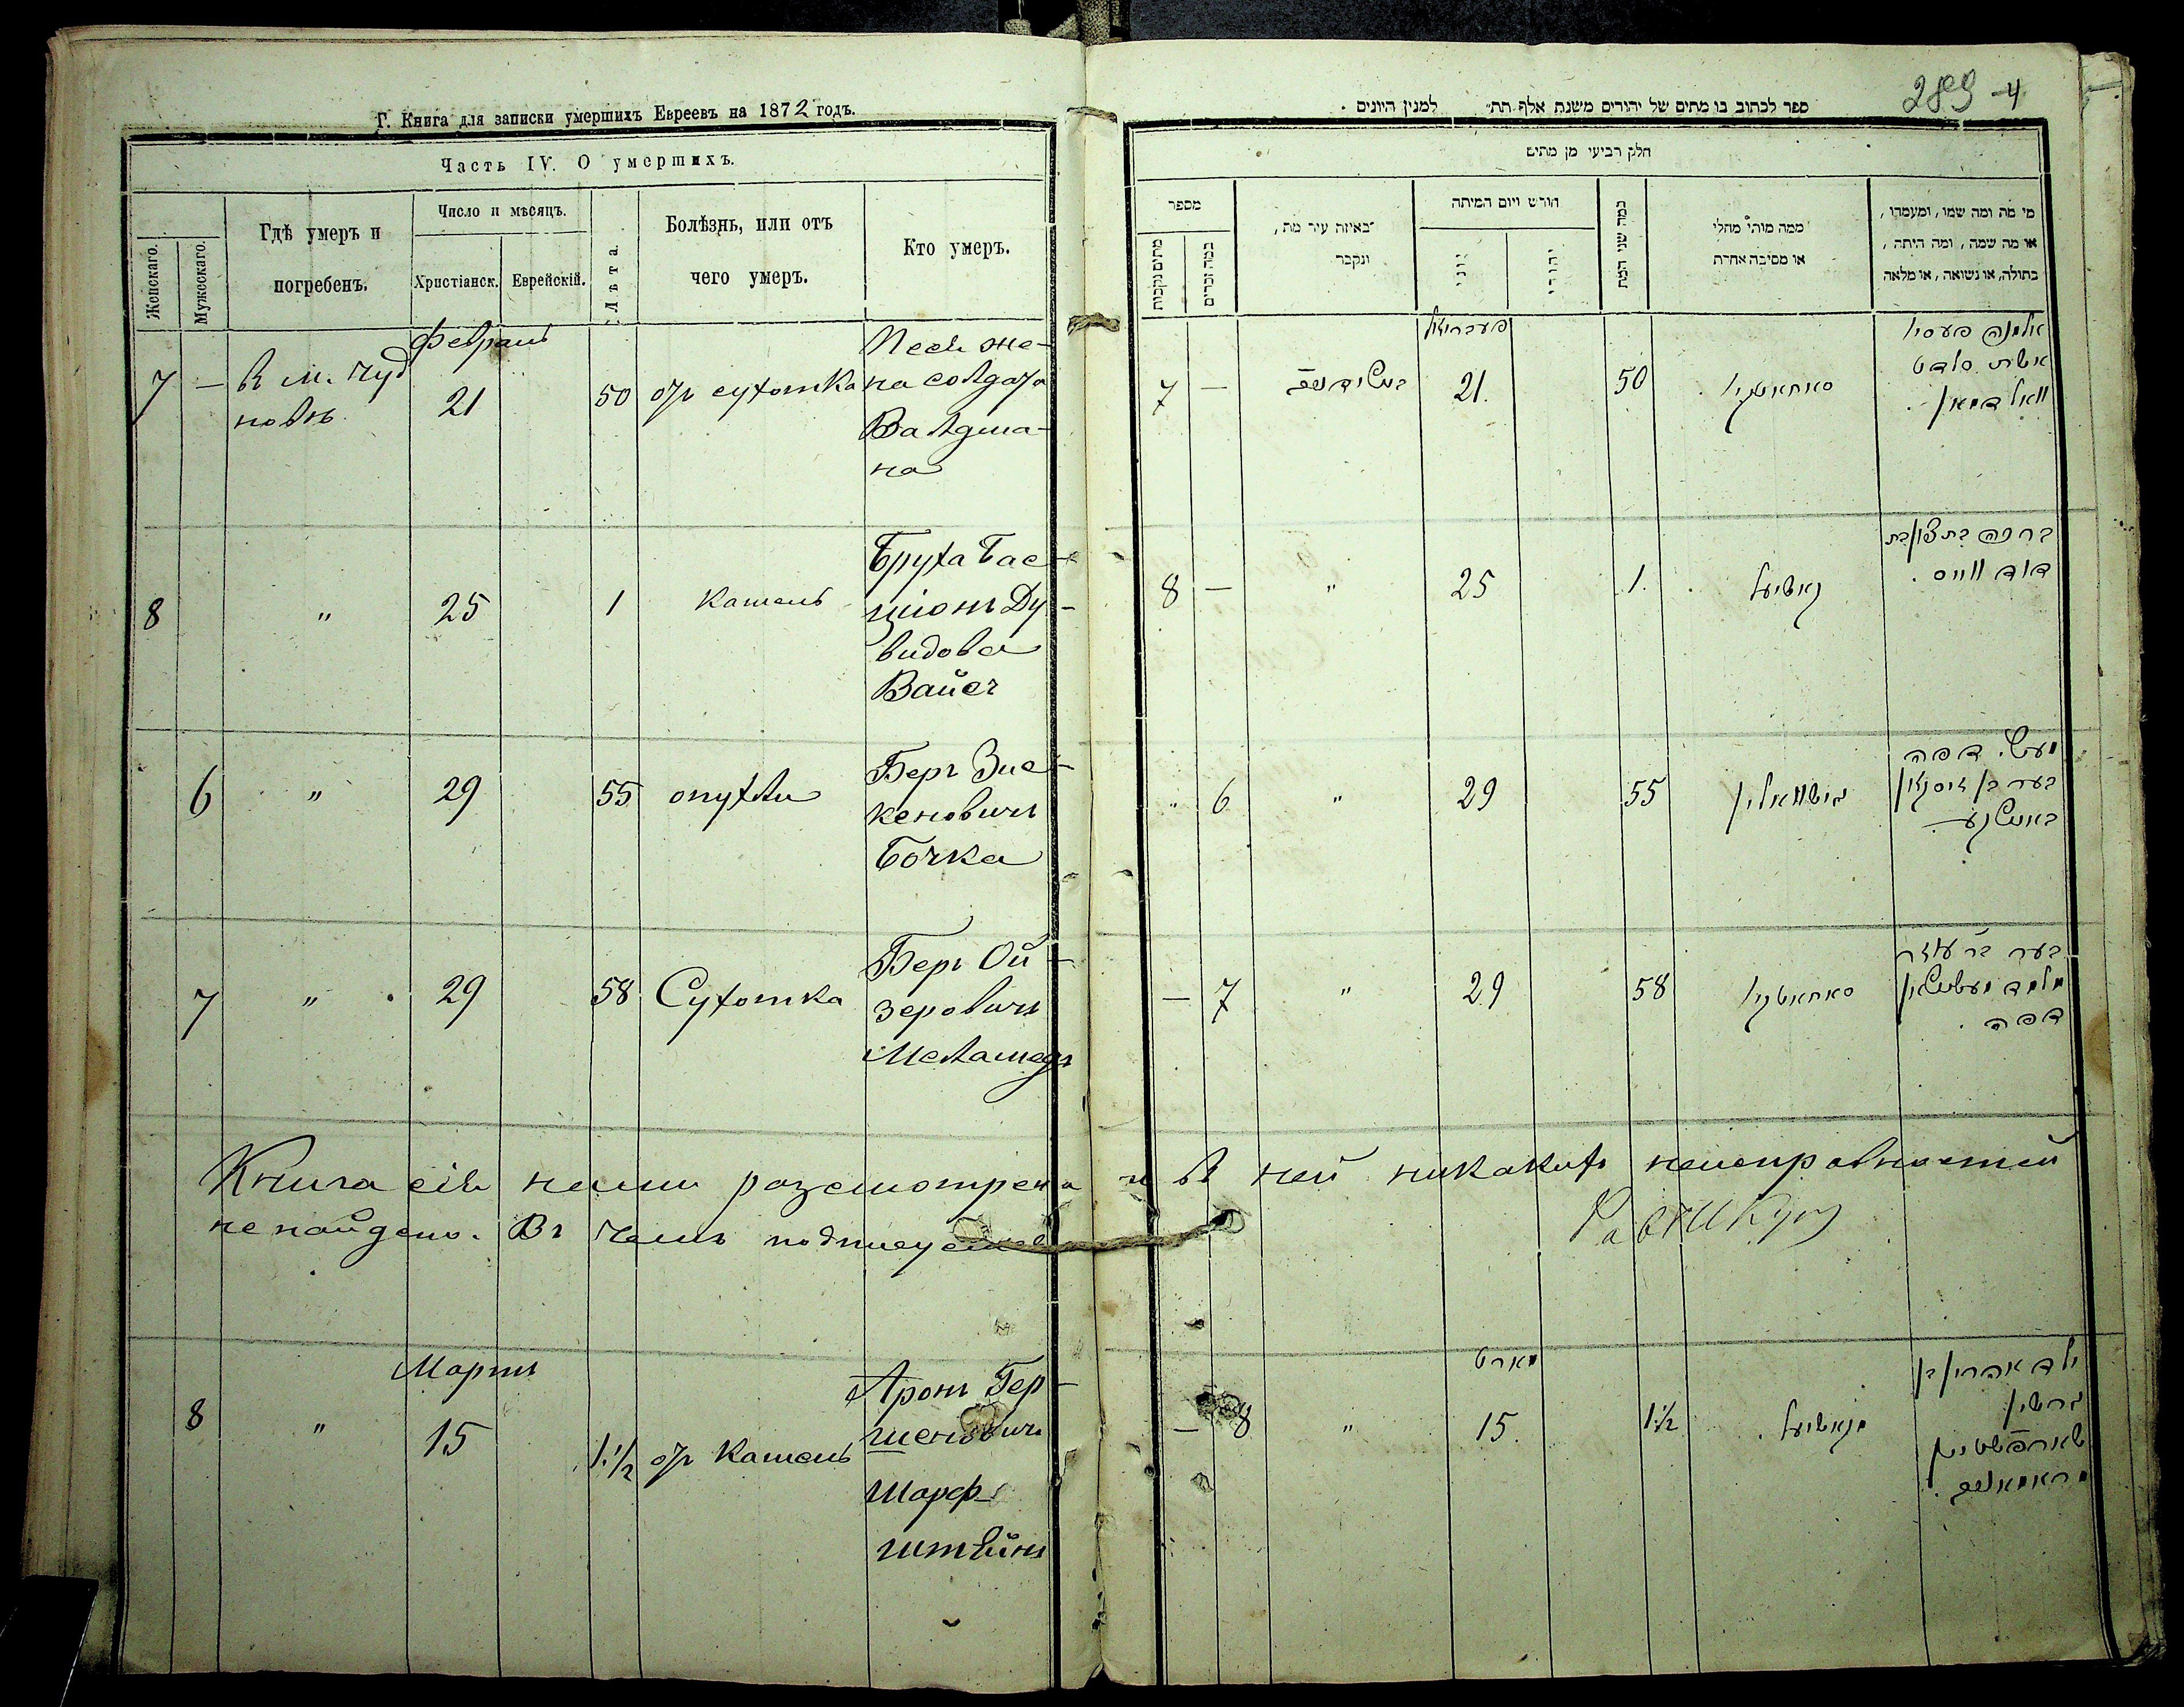 Г. Книга для записки умершихъ Евреевъ на 1872 годъ.
Часть IV. О умершихъ.
Женскаго.
Мужескаго.
Гдѣ умеръ и
погребенъ.
Число и мѣсяцъ.
Христіанск.
Еврейскій.
Лѣта.
Болѣзнь, или отъ
чего умеръ.
Кто умеръ.
Февраль
7 — В м. Чуд
новѣ
21
50
отъ сухотка
Песя же-
на солдата
Валдма-
на
8 " 25 1 кашель
Бруха Бас-
ціонъ Ду-
видова
Вайсъ
6 " 29 55 опухли
Беръ Зис-
кеновичъ
Бочка
7 " 29 58 Сухотка
Беръ Ой-
зеровичъ
Меламедъ
Книга сія нами разсмотрена и въ ней никакихъ неисправностей
не найдено. Въ чемъ подписуемся
Мартъ
8 " 15 1 1/2 отъ Кашель
Аронъ Гер-
шеновичъ
Шарф-
штейнъ
289 4
ספר לכתוב בו מתים של יהודים משנת אלף תת״ למנין היונים .
חלק רביעי מן מתים
מספר
מתים נקבות
כמה זכרים
באיזה עיר מת,
ונקבר
חודש ויום המיתה
יוני
יהודי
כמה שני המת
ממה מותו מחלי
או מסיבה אחרת
מי מת ומה שמו, ומעמדו,
או מה שמה, ומה היתה,
בתולה, או נשואה, או מלאה
פעברואל
7 — 21. 50
אלמנה פעסיל
אשת סלדט
וואלדמאן
8 — " 25 1.
ברכה בת ציון בת
דוד ווייס .
" 6 " 29 55
— 7 " 29 58
מארט
— 8 " 15. 1 1/2
ילד אהרון בן
גרשון
שארפשטיין